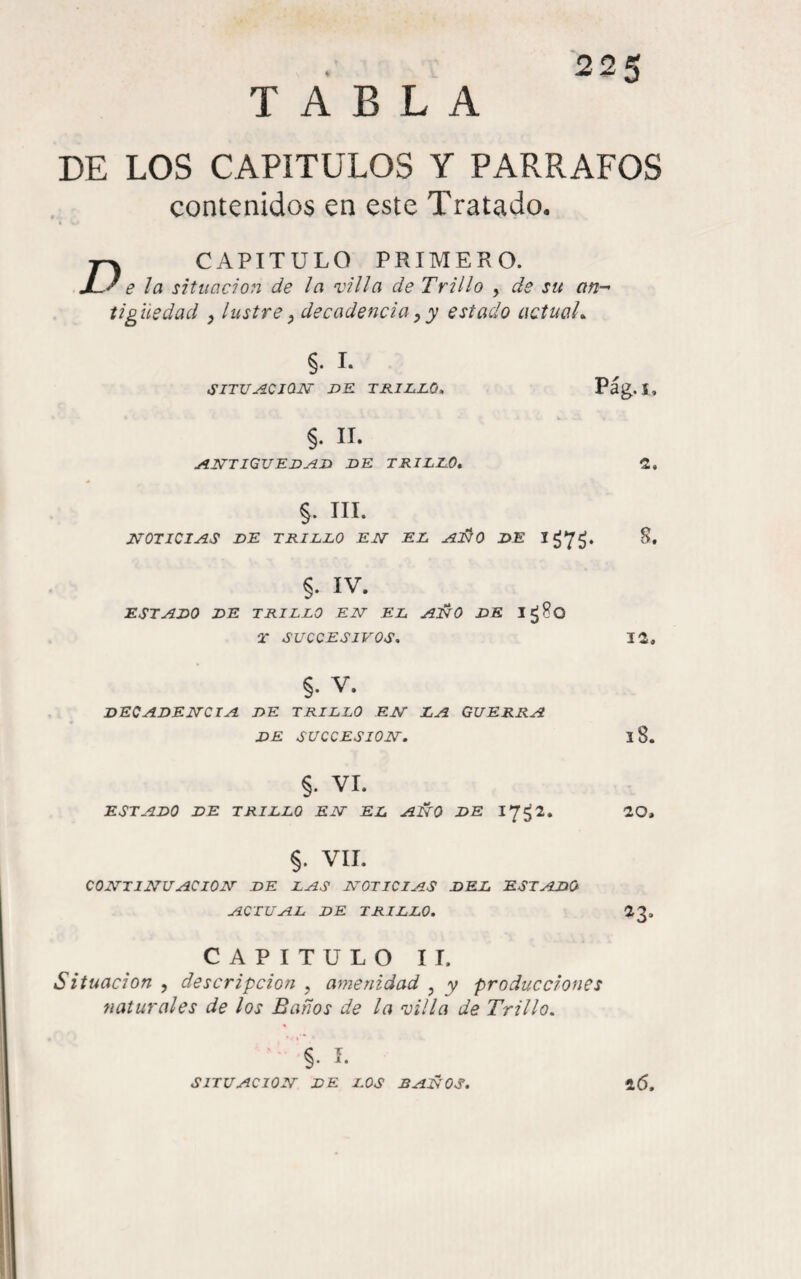 225
TABLA
DE LOS CAPITULOS Y PARRAFOS
contenidos en este Tratado.
CAPITULO PRIMERO.
De la situacion de la villa de Trillo , de su an-
tigüedad , lustre , decadencia , y estado actual.
§. I.
SITUACION DE TRILLO. Pág. 1.
§. II.
ANTIGUEDAD DE TRILLO. 2.
§. III.
NOTICIAS DE TRILLO EN EL AÑO DE 1575. 8.
§. IV.
ESTADO DE TRILLO EN EL AÑO DE 1580
Y SUCCESIVOS. 12.
§. V.
DECADENCIA DE TRILLO EN LA GUERRA
DE SUCCESION. 18.
§. VI.
ESTADO DE TRILLO EN EL AÑO DE 1752. 20.
§. VII.
CONTINUACION DE LAS NOTICIAS DEL ESTADO
ACTUAL DE TRILLO. 23.
CAPITULO II.
Situacion , descripcion , amenidad , y producciones
naturales de los Baños de la villa de Trillo.
§. I.
SITUACION DE LOS BAÑOS. 26.